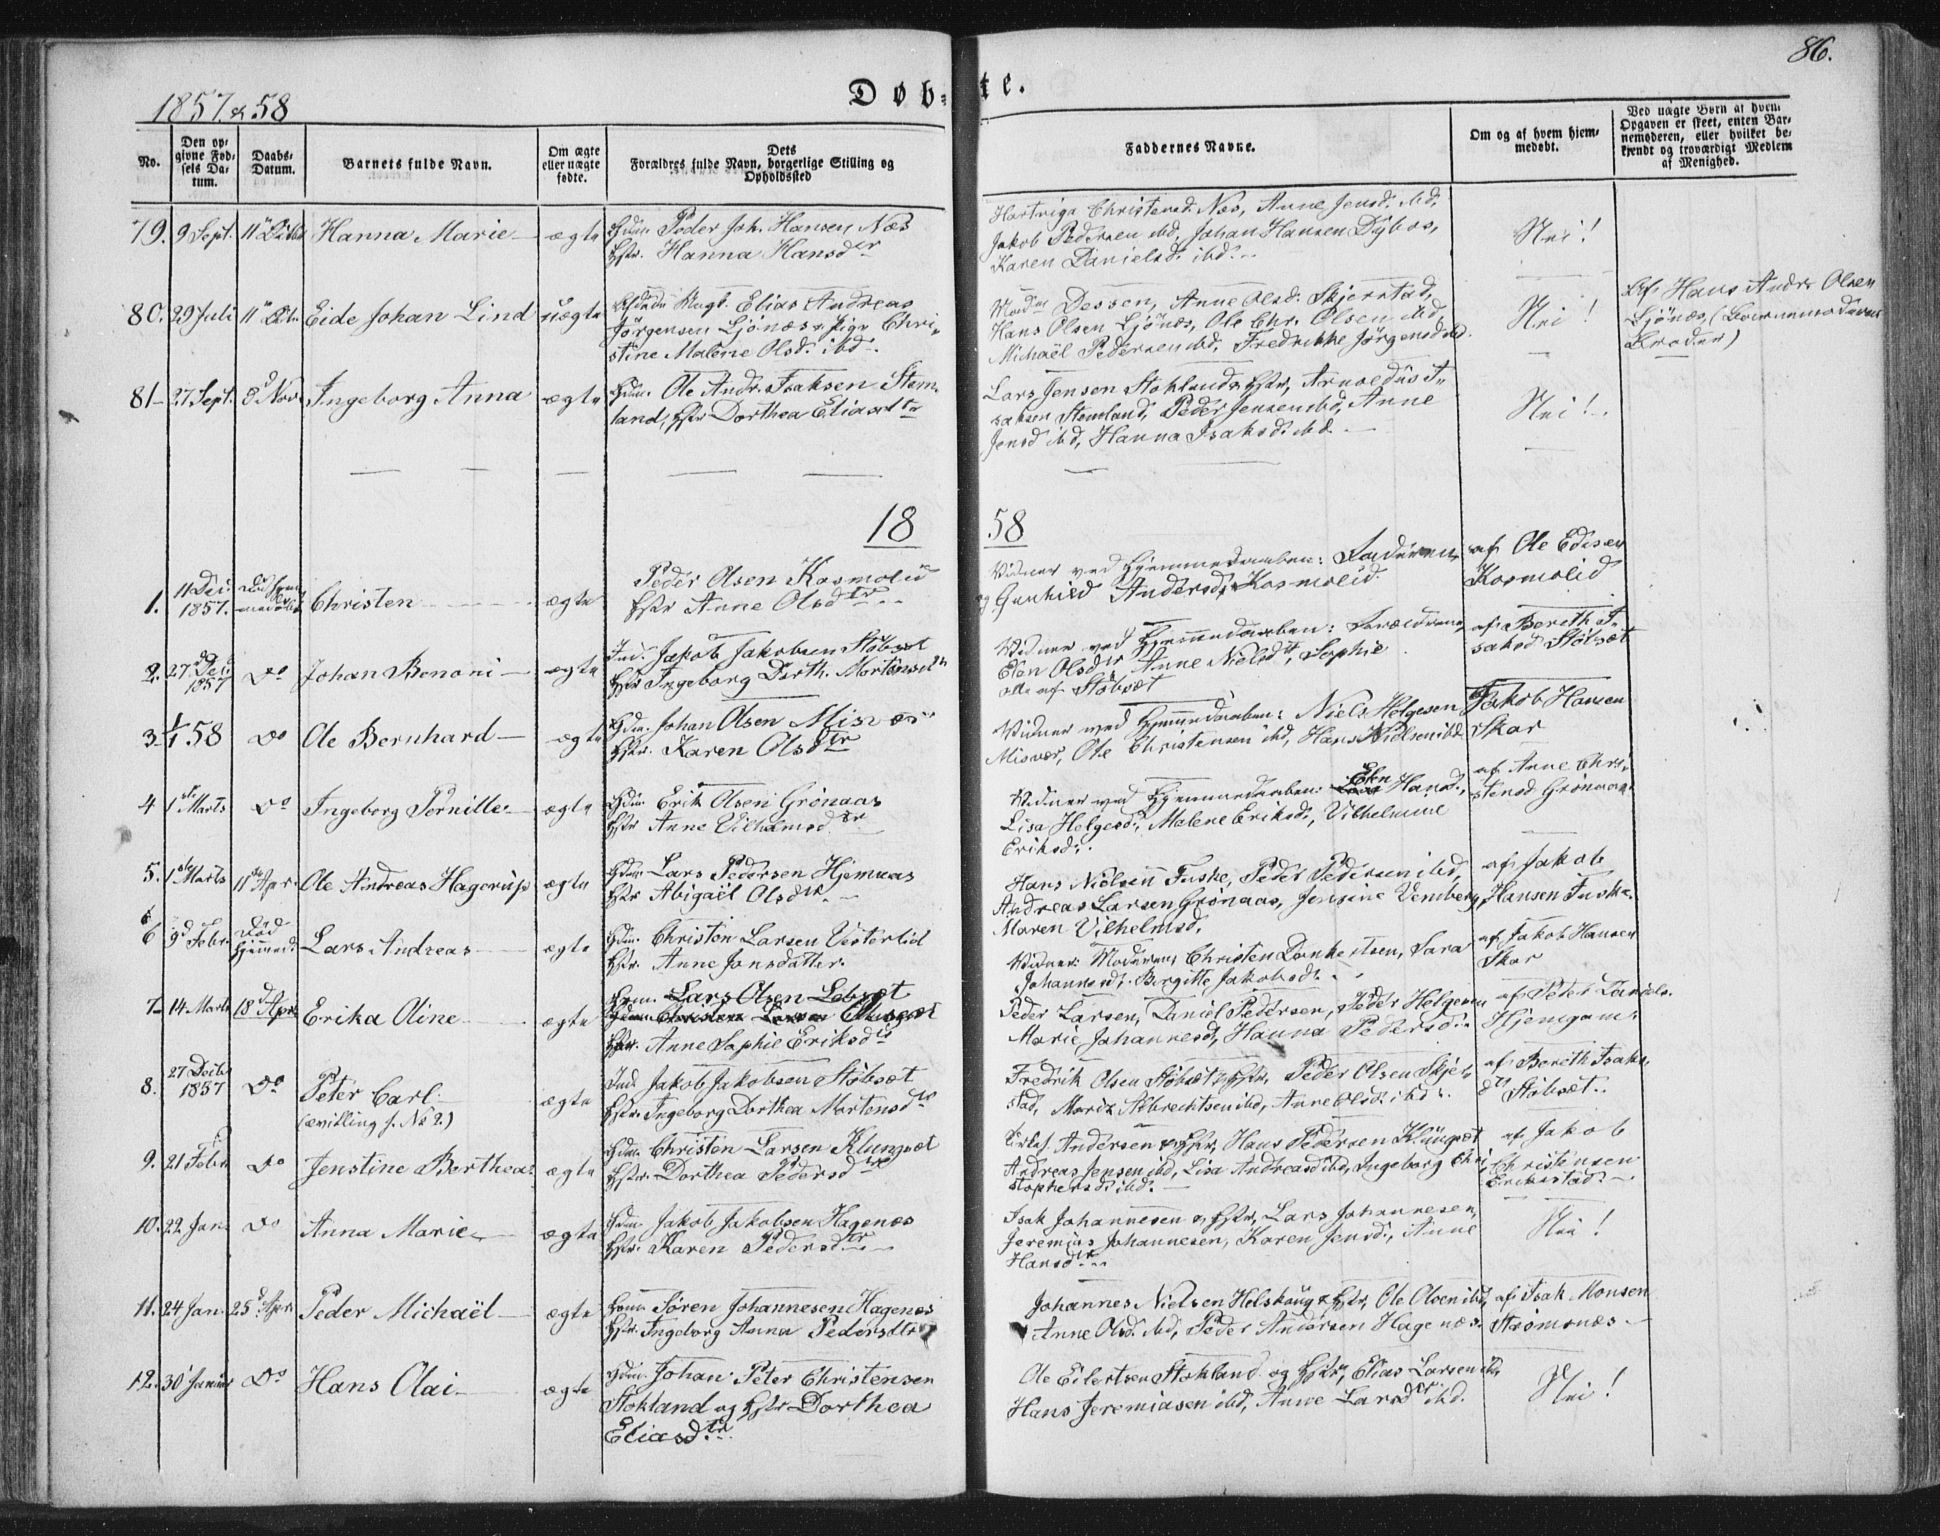 86.
Døb-te.
1857 & 58
No.
Den op-
givne Fød-
sels Da-
tum.
Daabs-
Datum.
Barnets fulde Navn.
Om ægte
eller uægte
fødte.
Dets
Forældres fulde Navn, borgerlige Stilling og
Opholdssted
Faddernes Navne.
Om og af hvem hjem-
medøbt.
Ved uægte Børn af hvem
Opgaven er skeet, enten Bar-
nemoderen, eller hvilket be-
kjendt og troværdigt Medlem
af Menighed.
79. 9 Sept. 11te Octbr Hanna Marie ægte Gdm. Peder Joh. Hansen Næs
Hstr. Hanna Hansdtr
Hartviga Christensd. Næs, Anne Jensd. ibd,
Jakob Pedersen ibd, Johan Hansen Dybos,
Karen Danielsd. ibd.
Nei!
80. 29 Juli 11te Oct. Eide Johan Lind uægte Ungk. Elias Andreas
Jörgensen Ljönæs & Pige Chri-
stine Malene Olsd. ibd.
Mad. Dessen, Anne Olsd. Skjerstad,
Hans Olsen Ljönæs, Ole Chr. Olsen ibd,
Michaël Pedersen ibd, Fredrikke Jörgensd ibd.
Nei!
Af Hans Andr. Olsen
Ljönæs, (Barnemoderens
Broder)
81 27 Sept. 8d Nov. Ingeborg Anna ægte Gdm. Ole Andr. Isaksen Stem-
land, Hstr Dorthea Eliasdtr
Lars Jensen Stokland & Hstr, Arnoldus I-
saksen Stemland, Peder Jensen ibd, Anne
Jensd ibd, Hanna Isaksd. ibd
Nei!
18 58
1. 11 Dec. 1857. Christen ægte Peder Olsen Kosmolid
Hstr Anne Olsdtr
Vidner ved Hjemmedaaben: Faderen
og Gunhild Andersd. Kosmolid.
af Ole Edisen
Kosmolid
2. 27d Dec. 1857 Do Johan Benoni ægte Ind. Jakob Jakobsen Stöbset
Hstr Ingeborg Dorth. Mortensdtr
Vidner ved Hjemmedaaben: Forældrene
Elen Olsdtr, Anne Nielsdtr, Sophie
alle af Stöbsæt
af Bereth I-
saksd Stöbsæt
3. 1/1 58 Do Ole Bernhard ægte Gdm. Johan Olsen Misvær
Hstr. Karen Olsdtr
Vidner ved Hjemmedaaben: Niels Helgesen
Misvær, Ole Christensen ibd, Hans Nielsen ibd
Jakob Hansen
Skar
4 1ste Marts Do Ingeborg Pernille ægte Gdm. Erik Olsen Grönaas
Hstr Anne Vilhelmsdtr
Vidner ved Hjemmedaaben: Elen Hansd.,
Lisa Helgesd., Malene Eriksd., Vilhelmine
Eriksd.
af Anne Chri-
stensd Grönaas
5. 1ste Marts 11te Apr. Ole Andreas Hagerup ægte Gdm. Lars Pedersen Hjemaas
Hstr Abigaël Olsdtr.
Hans Nielsen Fuske, Peder Pedersen ibd,
Andreas Larsen Grönaas, Jensine Vemberg,
Maren Vilhelmsd.
af Jakob
Hansen Fuske
6 9d Febr. Död Hjemmed. Lars Andreas ægte Gdm. Christen Larsen Vesterlid
Hstr. Anne Jonsdatter.
Vidner: Moderen, Christen Dankertsen, Sara
Johannesd. Birgitte Jakobsd.
af Jakob Hansen
Skar
7 14 Marts 18d Apr. Erika Oline ægte Gdm. Lars Olsen Lebsæt
Gdm. Christen Larsen Klungset
Hstr. Anne Sophie Eriksdtr
Peder Larsen, Daniel Pedersen, Peder Helgesen
Marie Johannesd, Hanna Pedersd.
af Peter Daniels.
Hjemgam.
8. 27 Decbr 1857 Do Peter Carl ægte Ind. Jakob Jakobsen Stöbsæt
(tvilling s. No 2.) Hstr. Ingeborg Dorthea Mortensdtr
Fredrik Olsen Stöbsæt & Hstr, Peder Olsen Skjer-
stad, Marit Albrechtsen ibd, Anne Olsd. ibd.
af Bereth Isaks-
dtr Stöbsæt.
9. 21 Febr. Do Jenstine Berthea ægte Gdm. Christen Larsen Klungset
Hstr. Dorthea Pedersdtr
Andersen & Hstr, Hans Pedersen Klungset
Andreas Jensen ibd, Lisa Andreasd ibd, Ingeborg Chri-
stophersd. ibd.
af Jakob
Christensen
Erikstad.
10. 22 Jan. Do Anna Marie ægte Gdm. Jakob Jakobsen Hagenæs
Hstr. Karen Pedersdtr
Isak Johannesen & Hstr, Lars Johannesen,
Jeremias Johannesen, Karen Jensd., Anne
Hansdtr
Nei!
11. 24 Jan. 25d Apr. Peder Michaël ægte Gdm. Sören Johannesen Hagenes
Hstr. Ingeborg Anna Pedersdtr
Johannes Nielsen Helskoug & Hstr, Ole Olsen ibd,
Anne Olsd. ibd, Peder Andersen Hagenæs.
af Isak Monsen
Strömsnæs
12. 30 Januar Do Hans Olai ægte Gdm. Johan Peter Christensen
Stokland og Hstr Dorthea
Eliasdtr.
Ole Eilertsen Stokland og Hstr, Elias Larsen ibd,
Hans Jeremiasen ibd, Anne Larsdtr. ibd.
Nei!